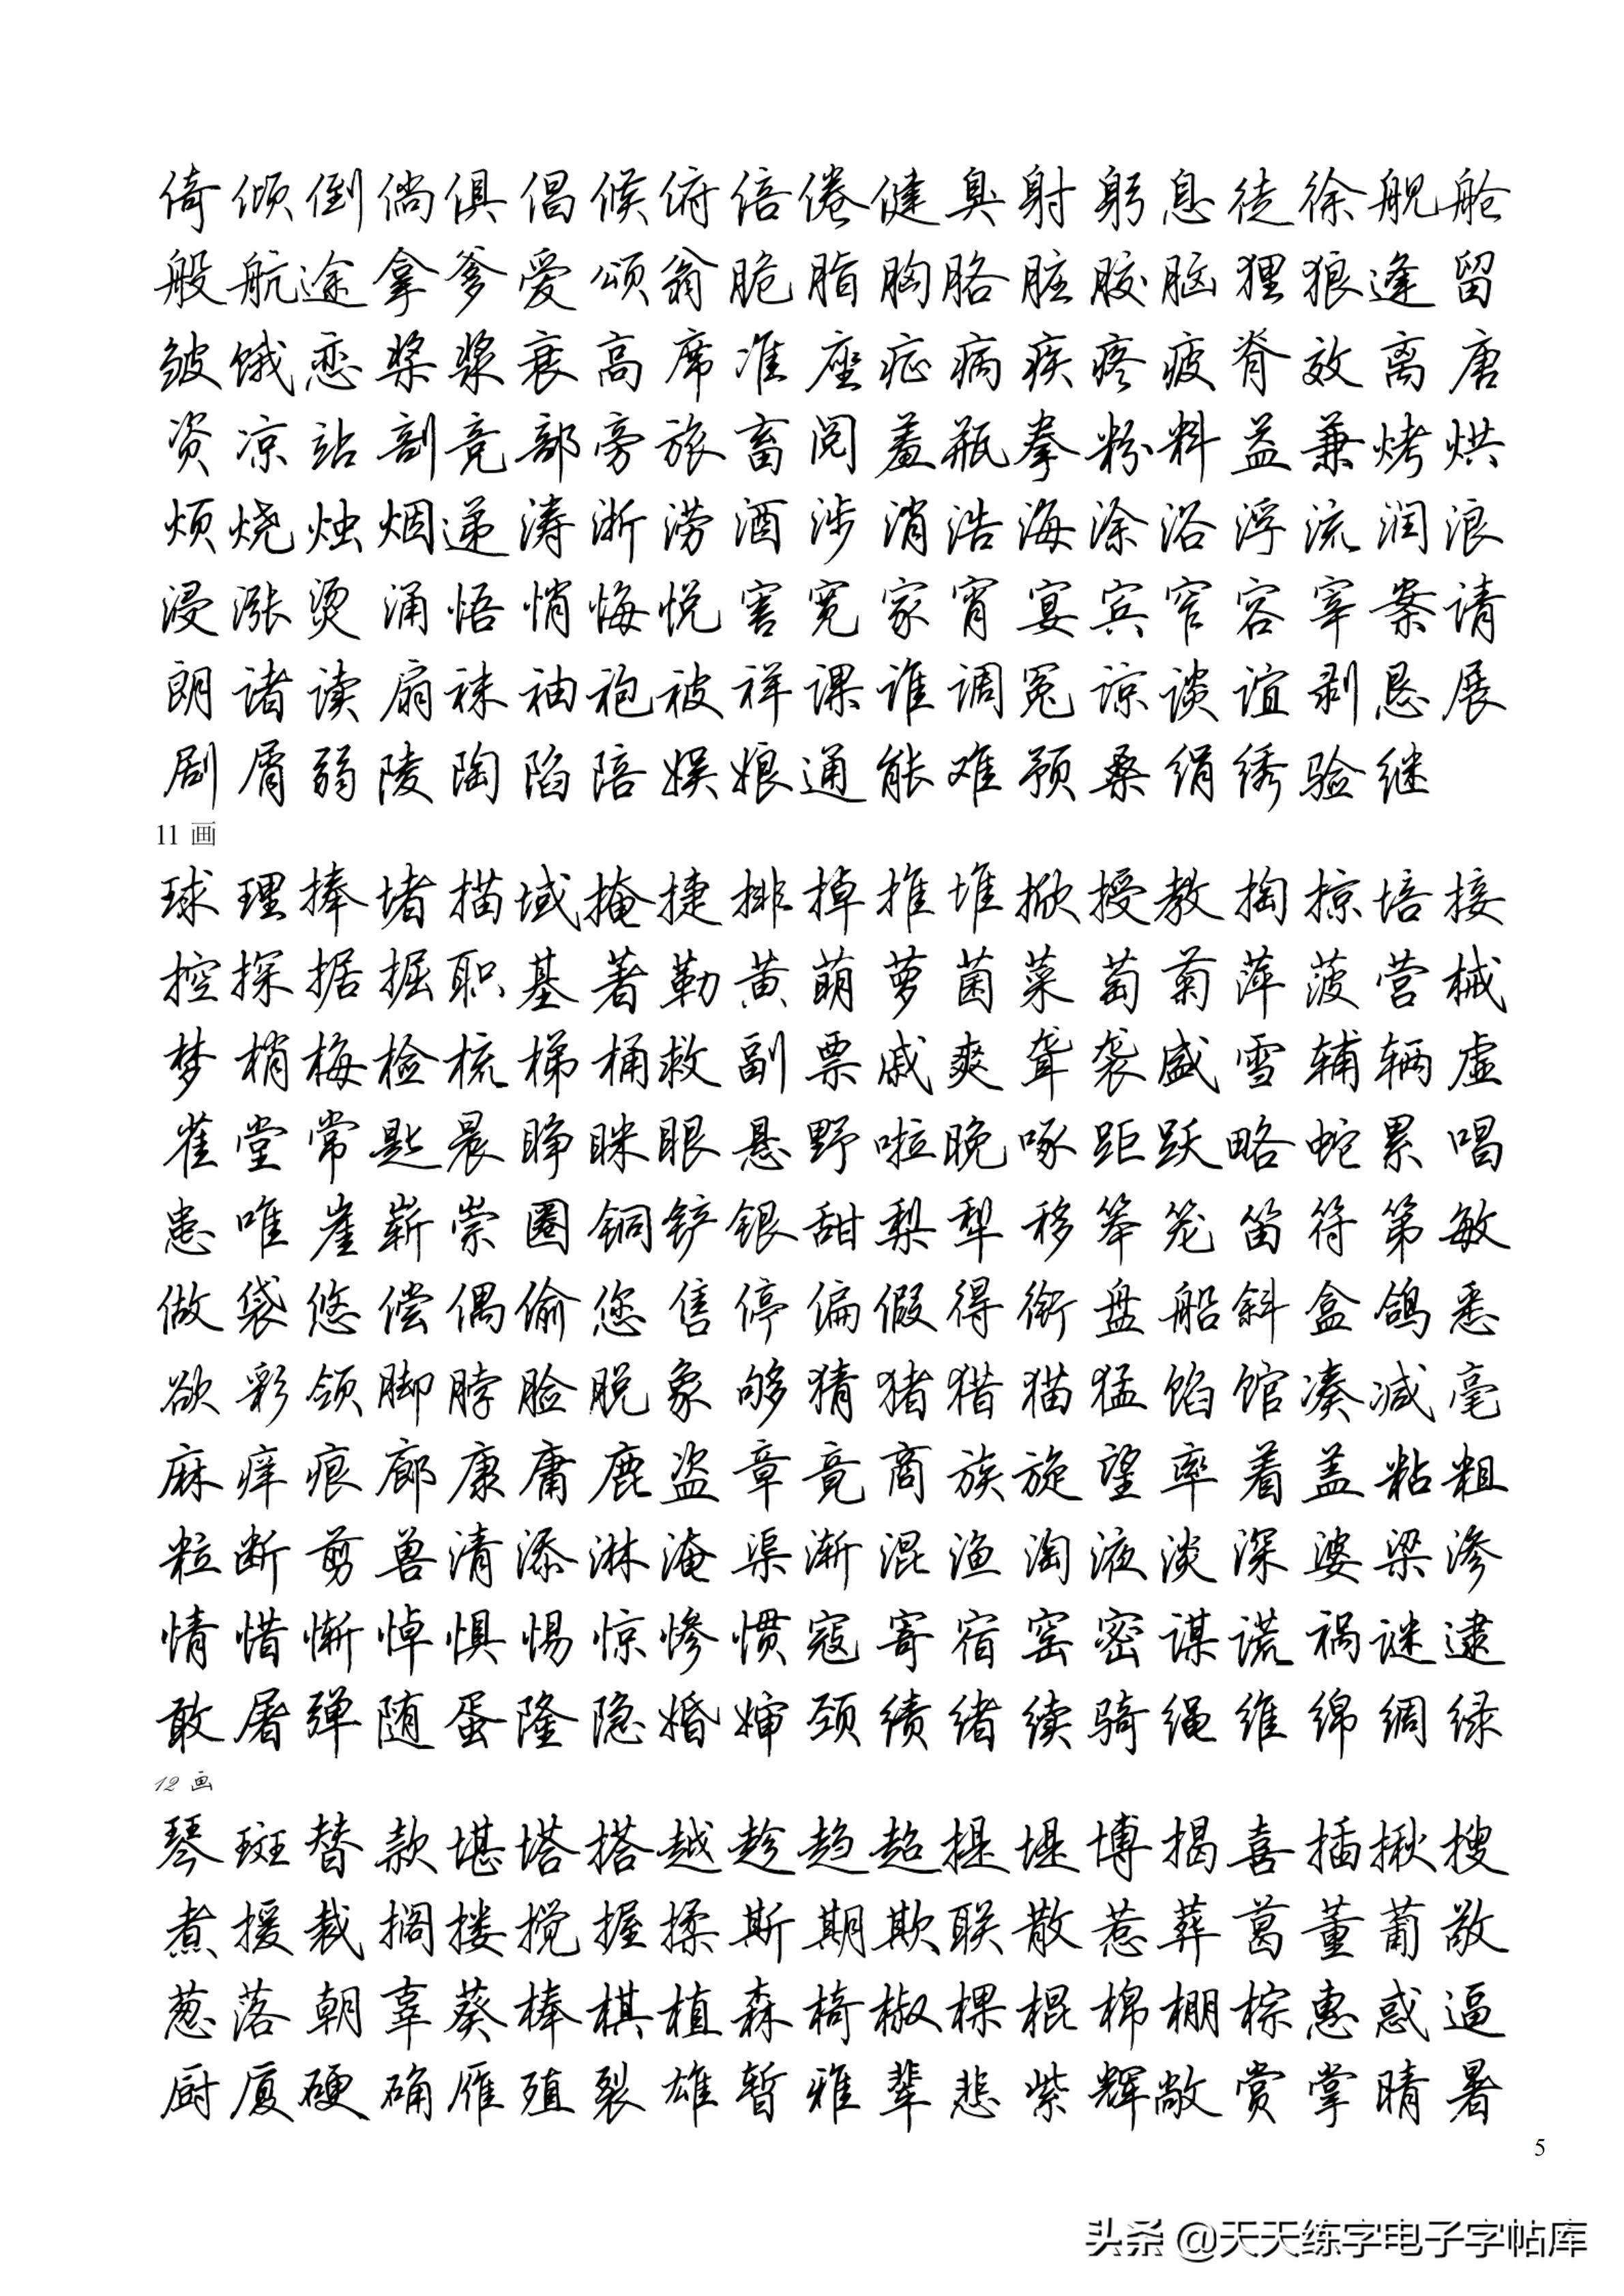 倚倾倒倘俱倡候俯倍倦健臭射躬息徒徐舰舱
般航途拿爹爱颂翁脆脂胸胳脏胶脑狸狼逢留
皱饿恋桨浆衰高席准座症病疾疼疲脊效离唐
资凉站剖竞部旁旅畜阅羞瓶拳粉料益兼烤烘
烦烧烛烟递涛浙涝酒涉消浩海涂浴浮流润浪
浸涨烫涌悟悄悔悦害宽家宵宴宾窄容宰案请
朗诸读扇袜袖袍被祥课谁调冤谅谈谊剥恳展
剧屑弱陵陶陷陪娱娘通能难预桑绢绣验继
11 画
球理捧堵描域掩捷排掉推堆掀授教掏掠培接
控探据掘职基著勒黄萌萝菌菜萄菊萍菠营械
梦梢梅检梳梯桶救副票戚爽聋袭盛雪辅辆虚
雀堂常匙晨睁眯眼悬野啦晚啄距跃略蛇累唱
患唯崖崭崇圈铜铲银甜梨犁移笨笼笛符第敏
做袋悠偿偶偷您售停偏假得衔盘船斜盒鸽悉
欲彩领脚脖脸脱象够猜猪猎猫猛馅馆凑减毫
麻痒痕廊康庸鹿盗章竟商族旋望率着盖粘粗
粒断剪兽清添淋淹渠渐混渔淘液淡深婆梁渗
情惜惭悼惧惕惊惨惯寇寄宿窑密谋谎祸谜逮
敢屠弹随蛋隆隐婚婶颈绩绪续骑绳维绵绸绿
12 画
琴斑替款堪塔搭越趁趋超提堤博揭喜插揪搜
煮援裁搁搂搅握揉斯期欺联散惹葬葛董葡敬
葱落朝辜葵棒棋植森椅椒棵棍棉棚棕惠惑逼
厨厦硬确雁殖裂雄暂雅辈悲紫辉敞赏掌晴暑
5
头条 @天天练字电子字帖库